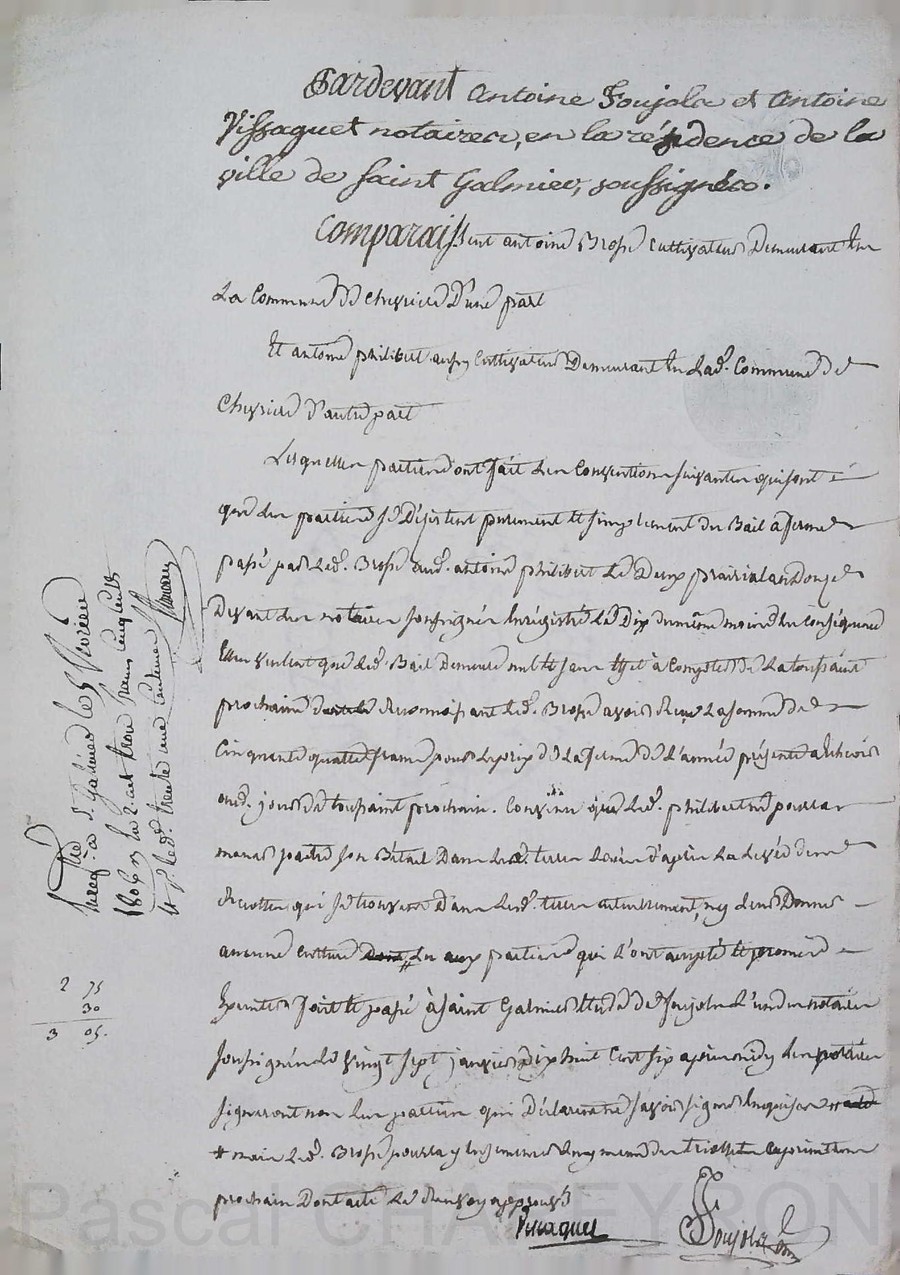 Pardevant Antoine Soujola et Antoine
Vissaguet notaires, en la résidence de la
ville de Saint Galmier, soussignés.
Comparaissent antoine Brosse Cultivateur Demeurant En
La Commune de Chevrier D'une part
Et antoine philibert aussy Cultivateur Demeurant En Lad. Commune De
Chevrier D'autre part
Lesquelles parties ont fait Les Conventions suivantes qui sont
que Les parties se Désistent purement et simplement du Bail à ferme
passé par Led. Brosse aud. antoine philibert Le Deux prairial an Douze
Devant Les notaires soussignés Enregistré Le Dix du même mois En Conséquence
Elles veulent que Led. Bail Demeure nul et sans Effet à Compter De La toussaint
prochaine Reconnoissant Led. Brosse avoir Reçu La somme de
Cinquante quatre francs pour Le prix de La ferme de L'année présente à Echeoir
aud. jour de toussaint prochain. Convenu que Led. philibert ne pourra
mener paitre son Bétail Dans Led. terres après La Levée des
Recoltes qui se trouvent Dans Led. terres, ny Leur Donner
aucune Culture aux parties qui L'ont accepté et promis
Executer fait et passé à Saint Galmier Etude de Soujola L'un des notaires
soussignés Le vingt sept janvier Dix huit Cent six après midy Les notaires
signeront non Les parties qui ont Déclaré ne savoir signer Enquises
# mais Led. Brosse pourra y
prochain Dont acte Le Renvoy approuvé
Vissaguet
Soujola
Enregistré à S. Galmier Le 5 Février
1806
2 75
30
3 05.
Pascal CHAPEYRON